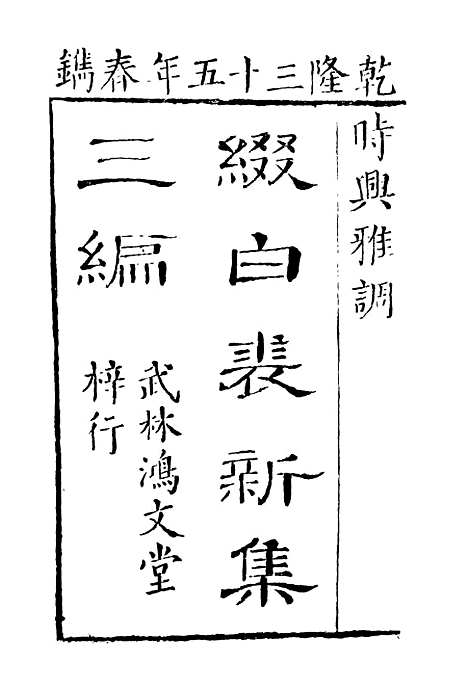 乾隆三十五年春鐫
時興雅調
綴白裘新集
三編
武林鴻文堂
梓行